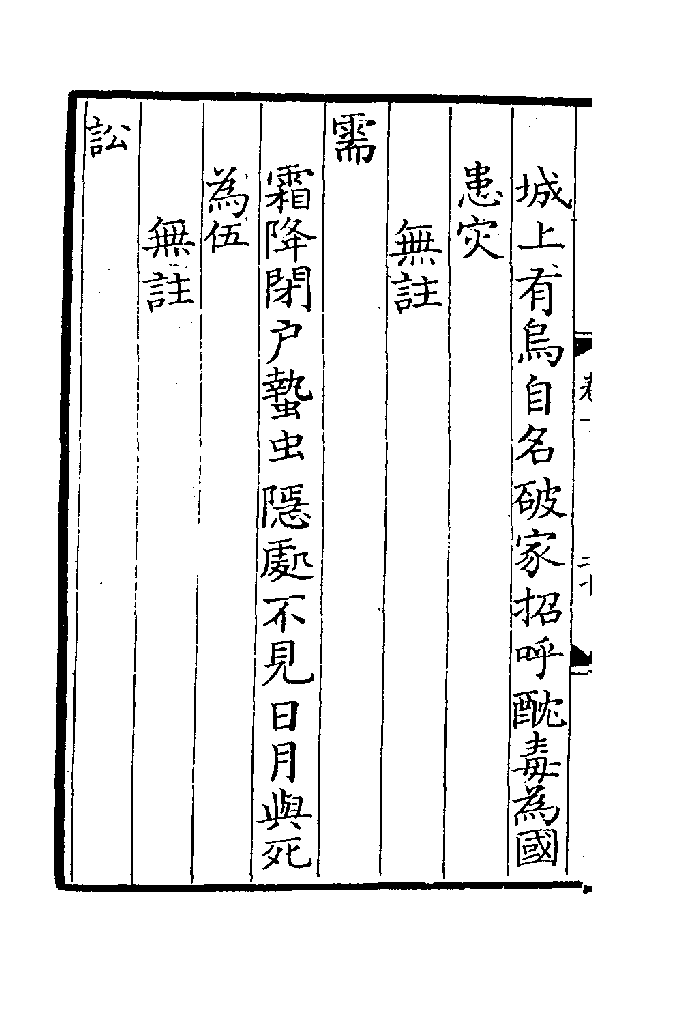 城上有烏自名破家招呼酖毒為國
患灾
無註
需
霜降閉户蟄虫隱處不見日月與死
為伍
無註
訟